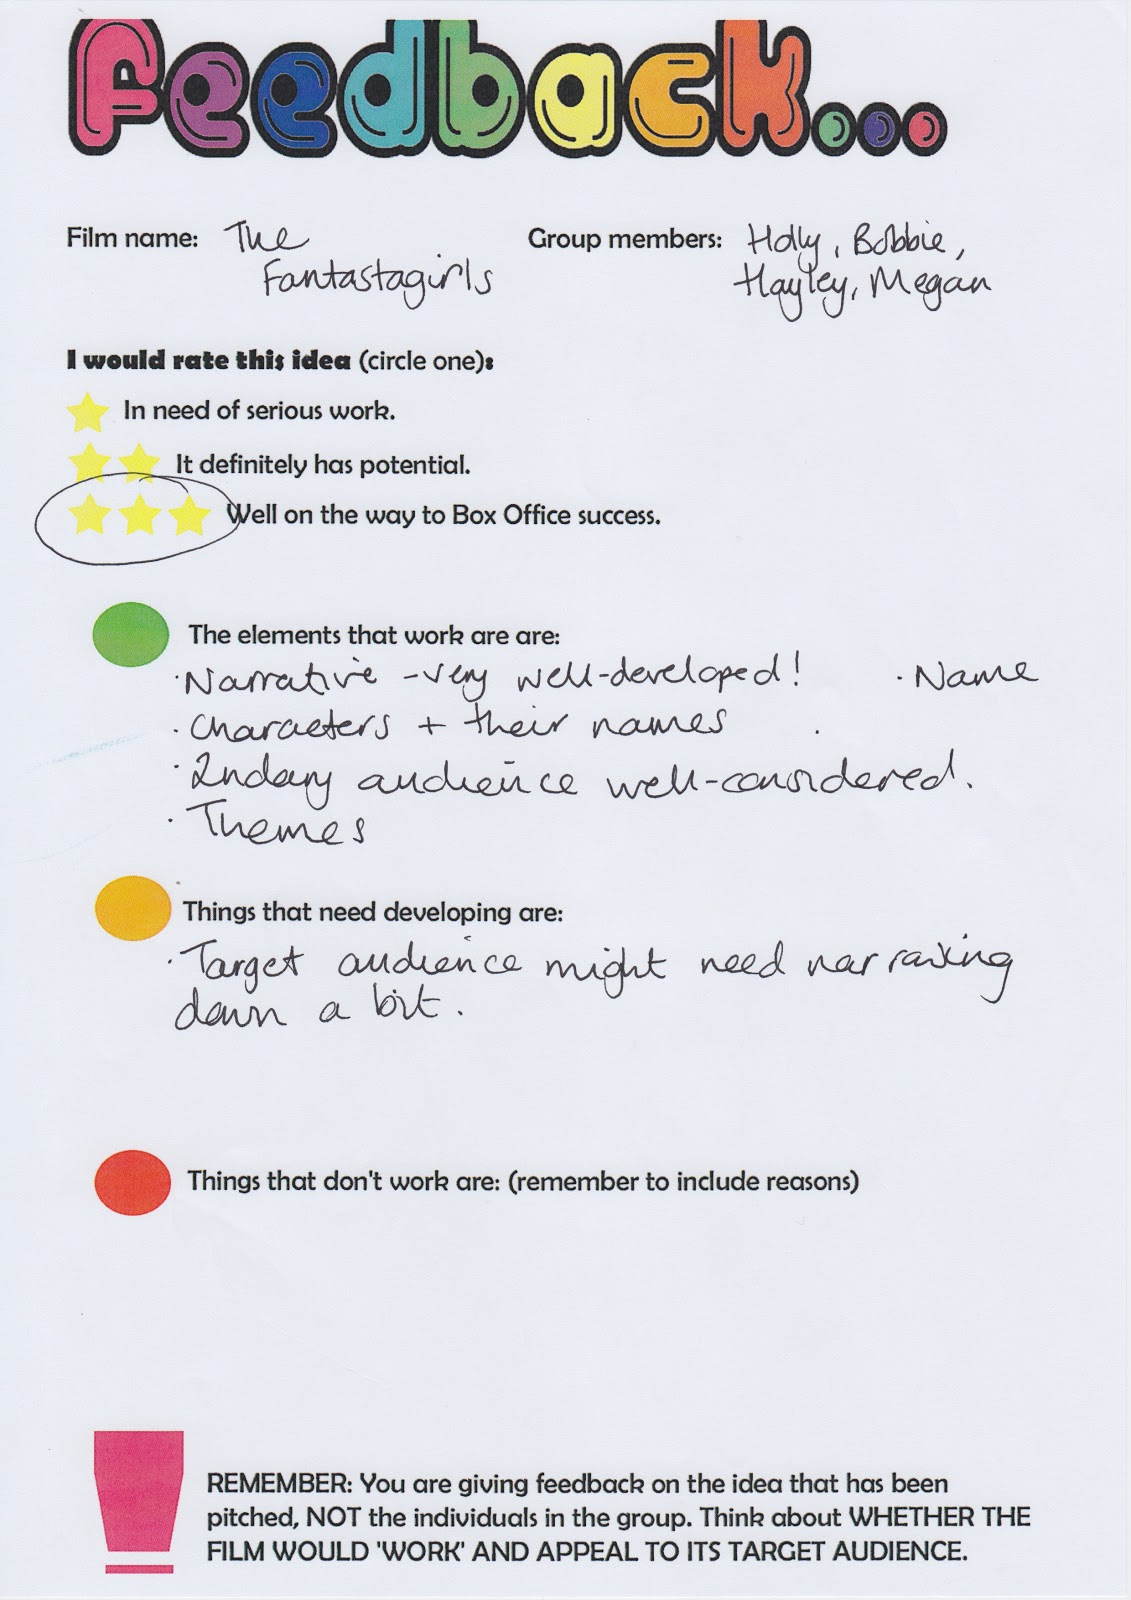 Feedback...
Film name: The Fantastagirls
Group members: Holly, Bobbie, Hayley, Megan
I would rate this idea (circle one):
In need of serious work.
It definitely has potential.
Well on the way to Box Office success.
The elements that work are are:
· Narrative - very well-developed! · Name
· Characters + their names ·
· 2ndary audience well-considered.
· Themes
Things that need developing are:
· Target audience might need narrowing
down a bit.
Things that don't work are: (remember to include reasons)
REMEMBER: You are giving feedback on the idea that has been
pitched, NOT the individuals in the group. Think about WHETHER THE
FILM WOULD 'WORK' AND APPEAL TO ITS TARGET AUDIENCE.